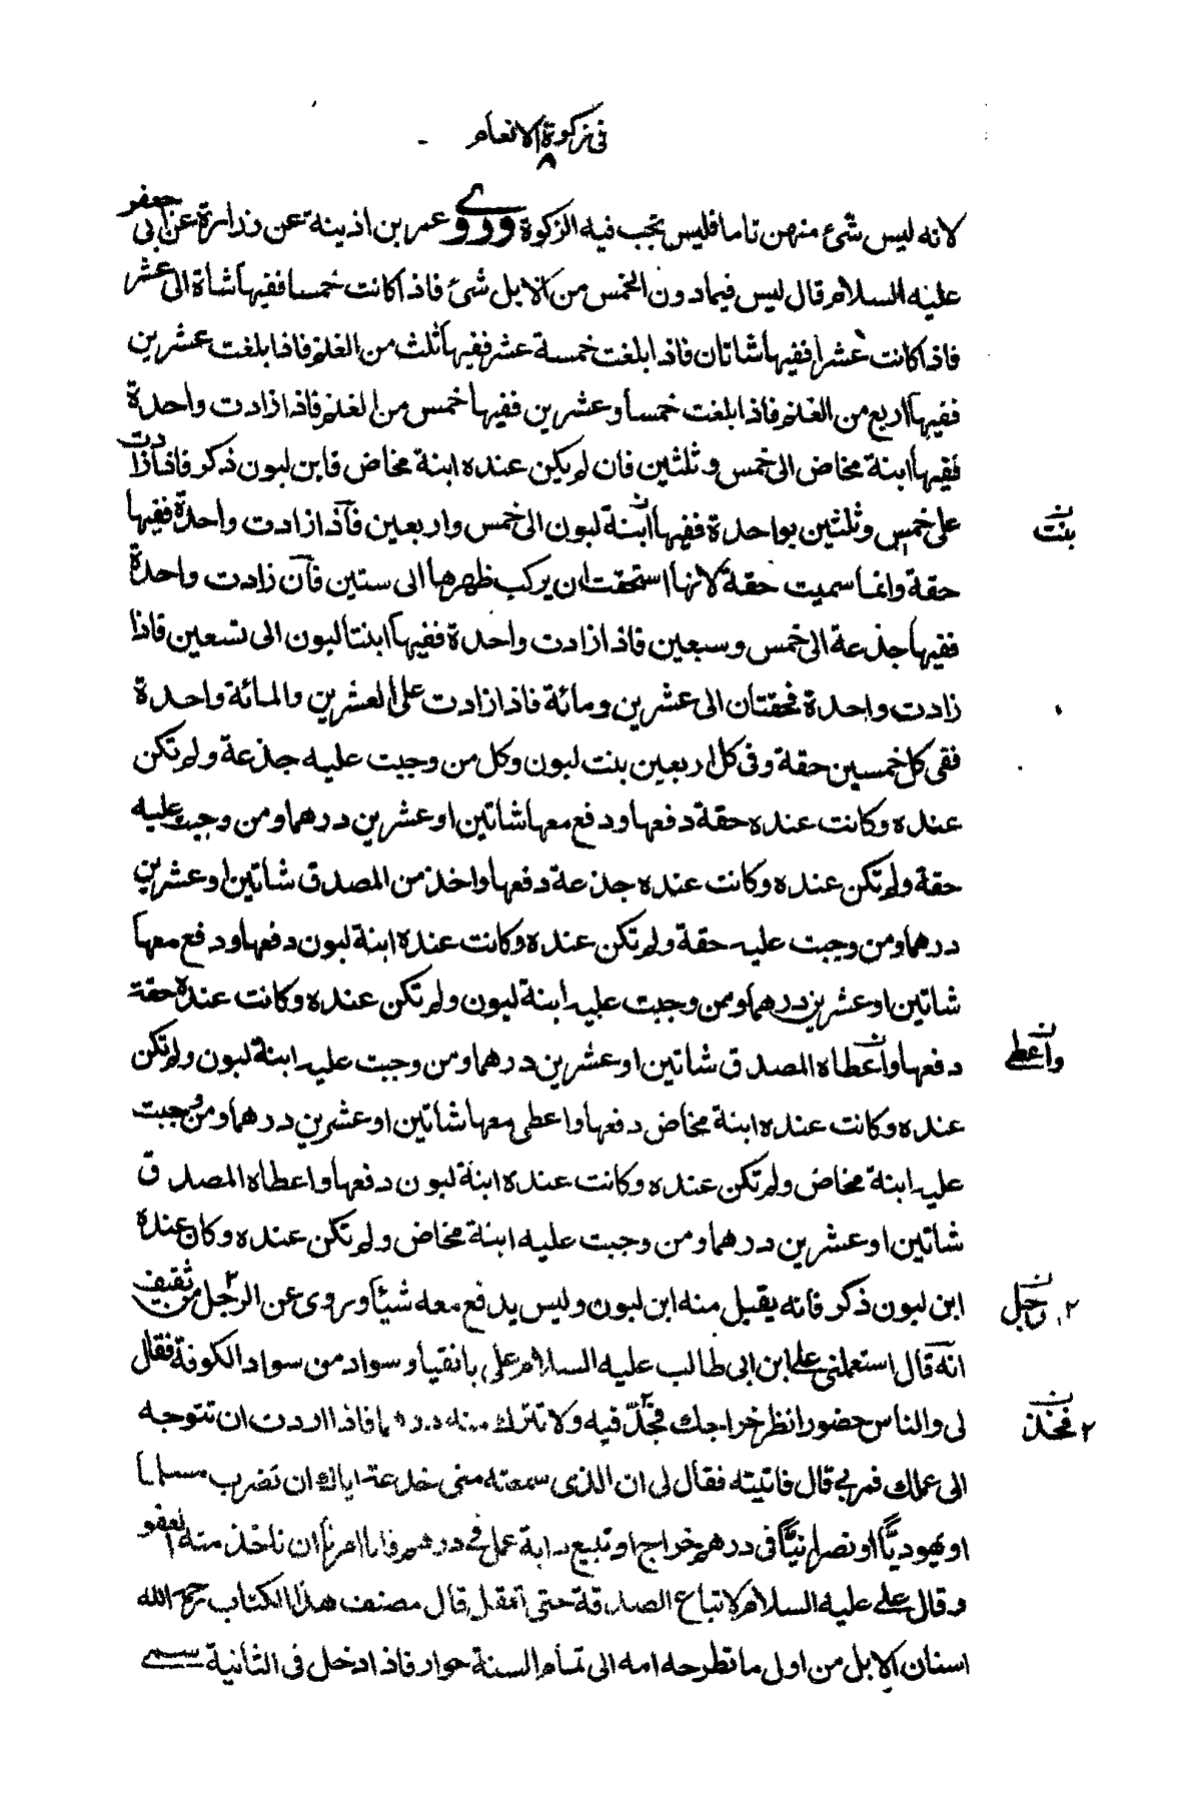 في زكوة الانعام
لانه ليس شئ منهن تاما فليس تجب فيه الزكوة وروى عمر بن اذينة عن زرارة عن ابى جعفر
عليه السلام قال ليس فيما دون الخمس من الابل شئ فاذا كانت خمسا ففيها شاة الى عشر
فاذا كانت عشرا ففيها شاتان فاذا بلغت خمسة عشر ففيها ثلث من الغنم فاذا بلغت عشرين
ففيها اربع من الغنم فاذا بلغت خمسا وعشرين ففيها خمس من الغنم فاذا زادت واحدة
ففيها ابنة مخاض الى خمس وثلثين فان لم يكن عنده ابنة مخاض فابن لبون ذكر فاذا زادت
على خمس وثلثين بواحدة ففيها ابنة لبون الى خمس واربعين فاذا زادت واحدة ففيها
بنت
حقة وانما سميت حقة لانها استحقت ان يركب ظهرها الى ستين فان زادت واحدة
ففيها جذعة الى خمس وسبعين فاذا زادت واحدة ففيها ابنتا لبون الى تسعين فاذا
زادت واحدة فحقتان الى عشرين ومائة فاذا زادت على العشرين والمائة واحدة
ففى كل خمسين حقة وفى كل اربعين بنت لبون وكل من وجبت عليه جذعة ولم تكن
عنده وكانت عنده حقة دفعها ودفع معها شاتين او عشرين درهما ومن وجبت عليه
حقة ولم تكن عنده وكانت عنده جذعة دفعها واخذ من المصدق شاتين او عشرين
درهما ومن وجبت عليه حقة ولم تكن عنده وكانت عنده ابنة لبون دفعها ودفع معها
شاتين او عشرين درهما ومن وجبت عليه ابنة لبون ولم تكن عنده وكانت عنده حقة
دفعها واعطاه المصدق شاتين او عشرين درهما ومن وجبت عليه ابنة لبون ولم تكن
واعطى
عنده وكانت عنده ابنة مخاض دفعها واعطى معها شاتين او عشرين درهما ومن وجبت
عليه ابنة مخاض ولم تكن عنده وكانت عنده ابنة لبون دفعها واعطاه المصدق
شاتين او عشرين درهما ومن وجبت عليه ابنة مخاض ولم تكن عنده وكان عنده
ابن لبون ذكر فانه يقبل منه ابن لبون وليس يدفع معه شيئا وروى عن الرجل من ثقيف
٢ رجل
انه قال استعملنى على ابن ابى طالب عليه السلام على بانقيا وسواد من سواد الكوفة فقال
لى والناس حضور انظر خراجك فجد فيه ولا تترك منه درهما فاذا اردت ان تتوجه
٢ فخذ
الى عملك فمر بي قال فاتيته فقال لى ان الذى سمعته منى خدعة اياك ان تضرب مسلما
او يهوديًّا او نصرانيًّا فى درهم خراج او تبيع دابة عمل في درهم فانا امرنا ان ناخذ منه العفو
وقال على عليه السلام لا تباع الصدقة حتى تعقل قال مصنف هذا الكتاب رحمه الله
اسنان الابل من اول ما تطرحه امه الى تمام السنة حوار فاذا دخل فى الثانية سمى